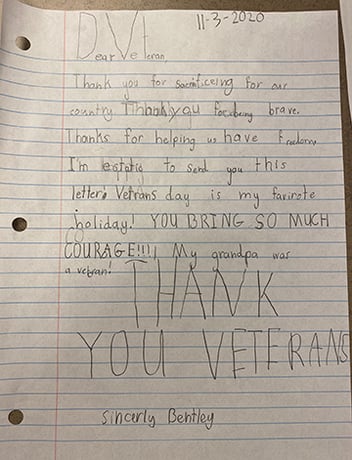 11-3-2020
Dear Veteran,
Thank you for sacrificeing for our
country Thhank you for being brave.
Thanks for helping us have freedom.
I'm estatic to send you this
letter. Vetrans day is my farirote
holiday! YOU BRING SO MUCH
COURAGE!!!! My grandpa was
a vetran!
THANK
YOU VETERANS
Sincerly Bentley